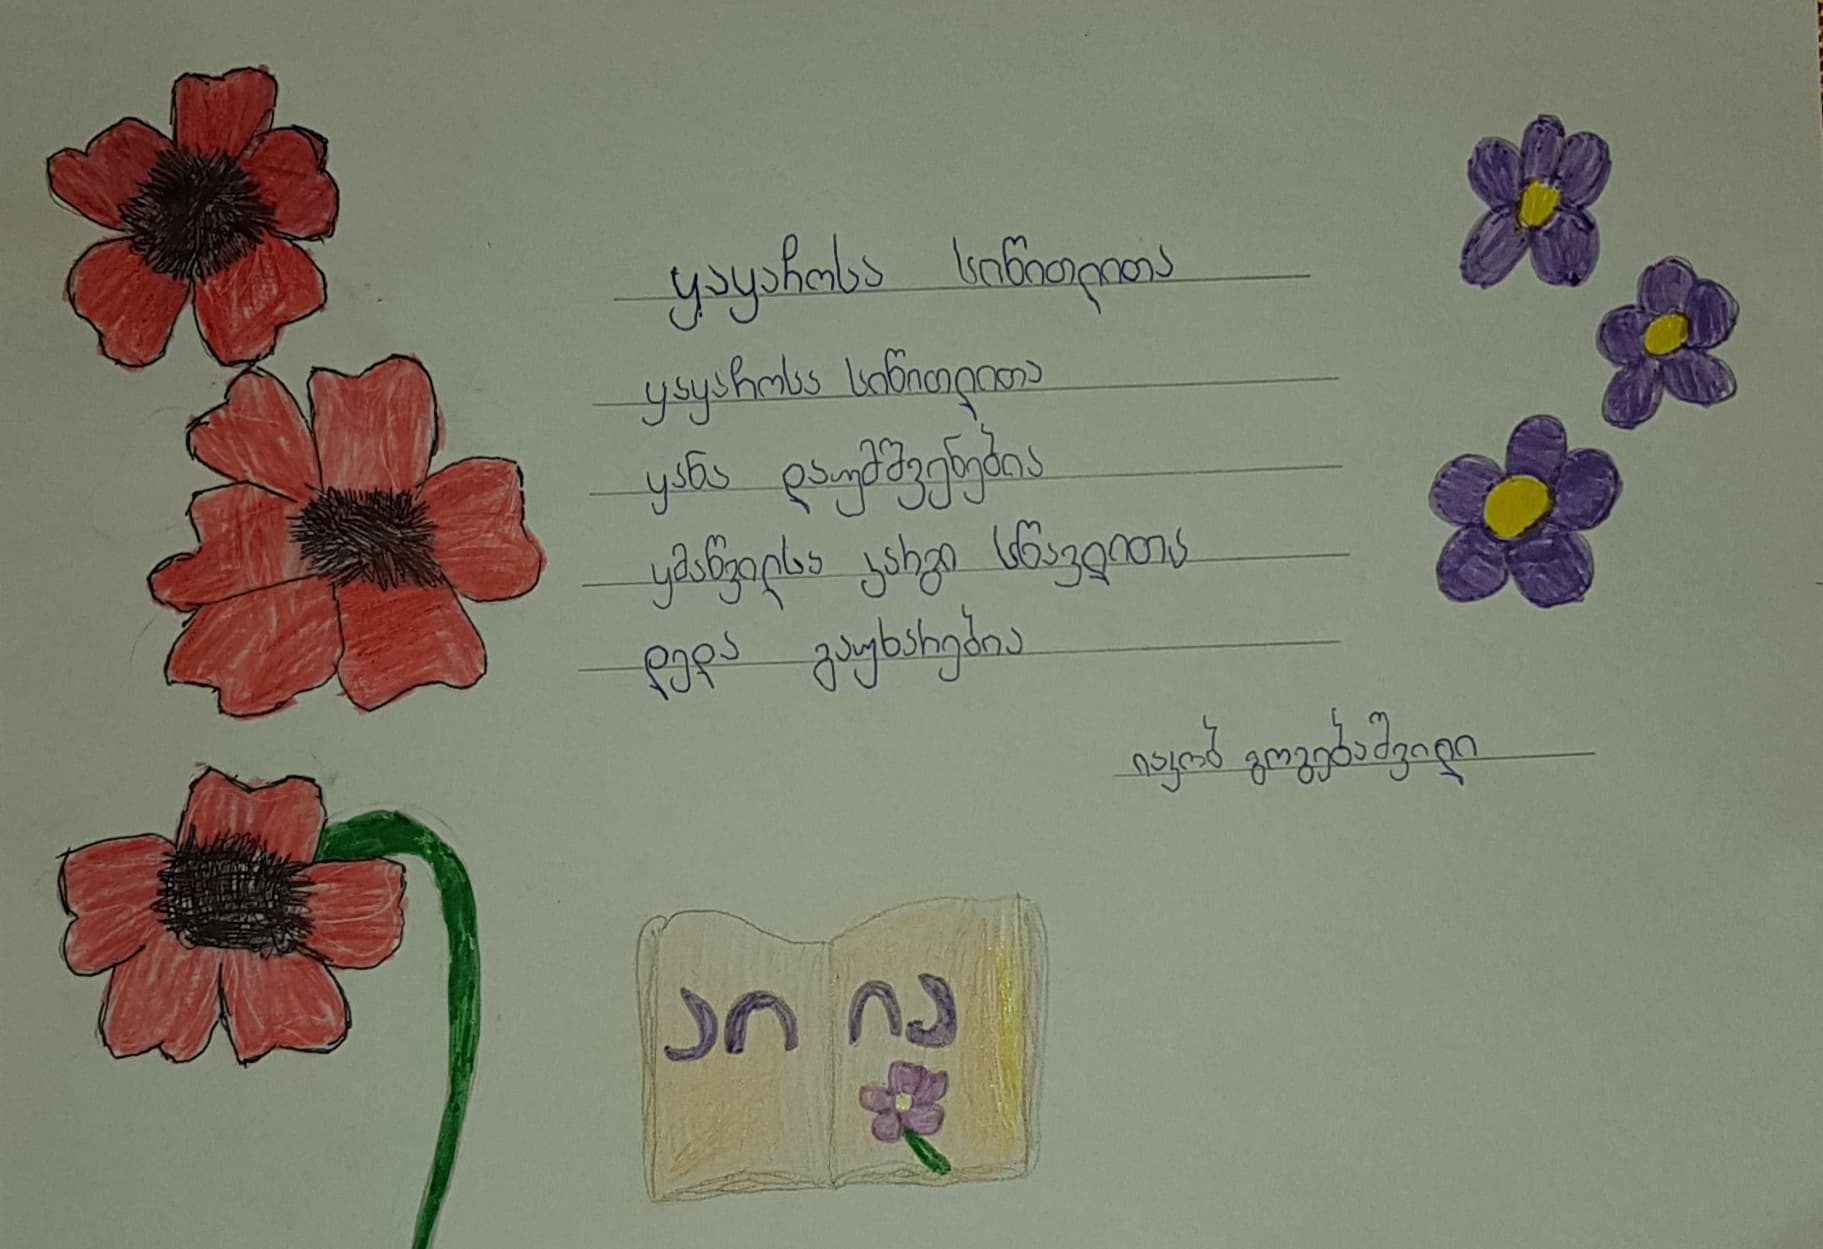 ყაყაჩოსა სიწითლითა
ყაყაჩოსა სიწითლითა
ყანა დაუმშვენებია
ყმაწვილსა კარგი სწავლითა
დედა გაუხარებია
იაკობ გოგებაშვილი
აი ია